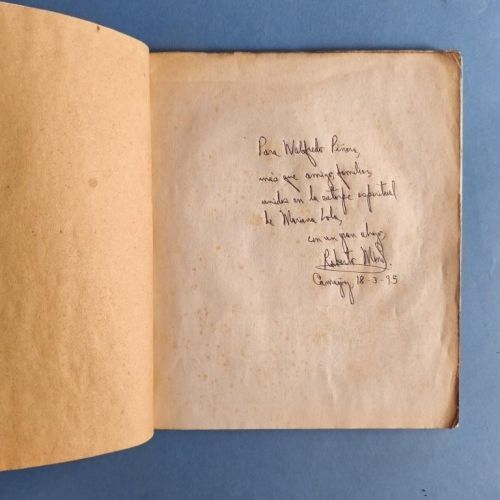 Para Walfredo Piñera,
más que amigo, familia,
unidos en la estirpe espiritual
de Mariana Lola,
con un gran abrazo
Roberto
Camagüey 18-3-95